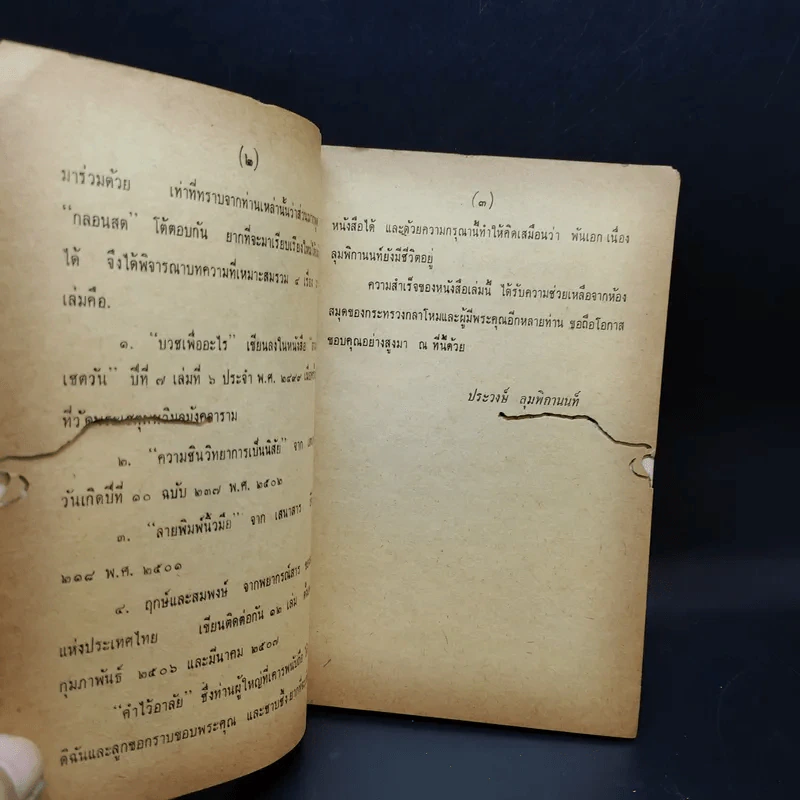 (๒)
มาร่วมด้วย เท่าที่ทราบจากท่านเหล่านั้นว่าส่วนมาก
“กลอนสด” โต้ตอบกัน ยากที่จะมาเรียบเรียงใหม่
ได้ จึงได้พิจารณาบทความที่เหมาะสมรวม ๔ เรื่อง
เล่มคือ.
๑. “บวชเพื่ออะไร” เขียนลงในหนังสือ
เชตวัน” ปีที่ ๗ เล่มที่ ๖ ประจำ พ.ศ. ๒๔๙๙
ที่วัดพระเชตุพนวิมลมังคลาราม
๒. “ความชินวิทยาการเป็นนิสัย” จาก
วันเกิดปีที่ ๑๐ ฉบับ ๒๓๗ พ.ศ. ๒๕๐๒
๓. “ลายพิมพ์นิ้วมือ” จาก เสนาสาร
๒๑๘ พ.ศ. ๒๕๐๑
๔. ฤกษ์และสมพงษ์ จากพยากรณ์สาร
แห่งประเทศไทย เขียนติดต่อกัน ๑๒ เล่ม
กุมภาพันธ์ ๒๕๐๖ และมีนาคม ๒๕๐๗
“คำไว้อาลัย” ซึ่งท่านผู้ใหญ่ที่เคารพนับถือ
ดิฉันและลูกขอกราบขอบพระคุณ และซาบซึ้ง
(๓)
หนังสือได้ และด้วยความกรุณานี้ทำให้คิดเสมือนว่า พันเอก เนื่อง
ลุมพิกานนท์ยังมีชีวิตอยู่
ความสำเร็จของหนังสือเล่มนี้ ได้รับความช่วยเหลือจากห้อง
สมุดของกระทรวงกลาโหมและผู้มีพระคุณอีกหลายท่าน ขอถือโอกาส
ขอบคุณอย่างสูงมา ณ ที่นี้ด้วย
ประวงษ์ ลุมพิกานนท์